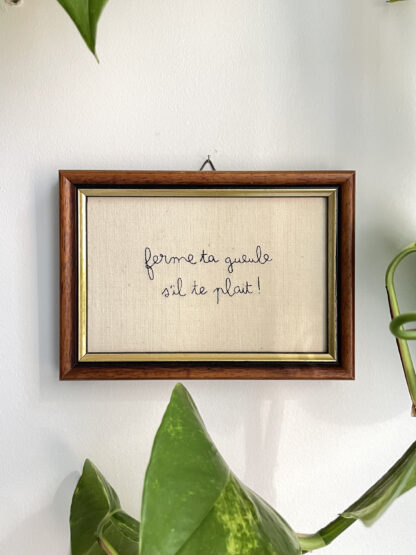 ferme ta gueule
s'il te plait !